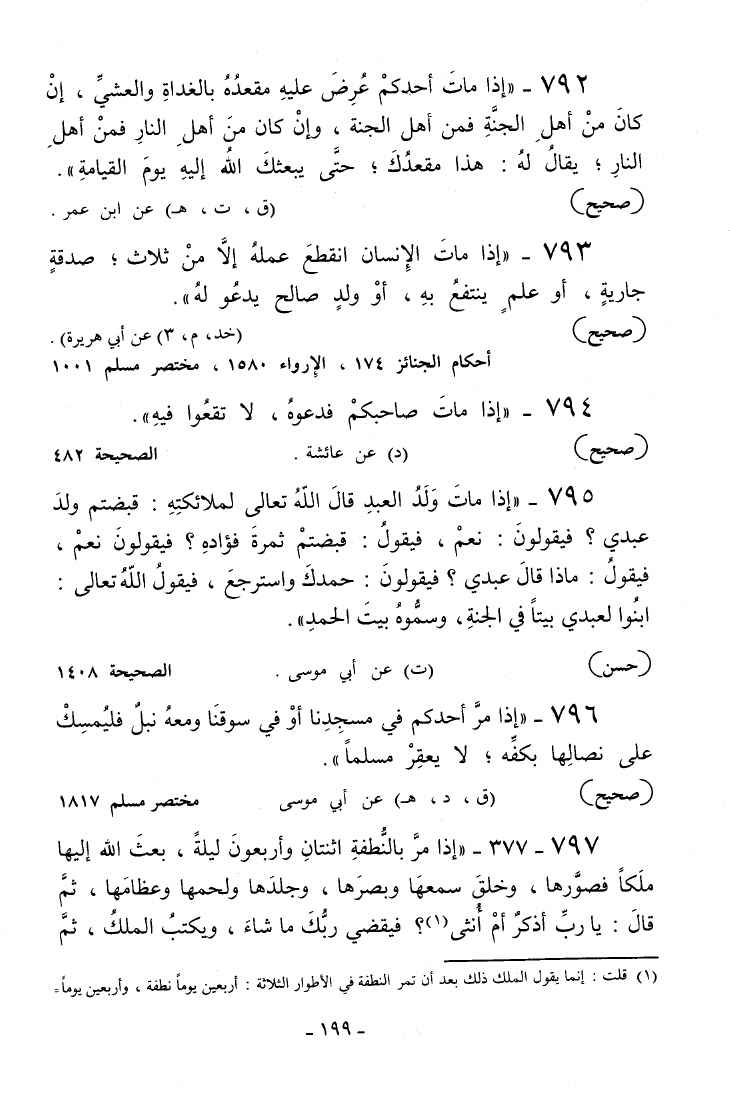 ٧٩٢ ـ «إذا ماتَ أحدكمْ عُرِضَ عليهِ مقعدُهُ بالغداةِ والعشيِّ ، إنْ
كانَ منْ أهلِ الجنَّةِ فمن أهل الجنة ، وإنْ كان منَ أهلِ النارِ فمنْ أهلِ
النارِ ؛ يقالُ لهُ : هذا مقعدُكَ ؛ حتَّى يبعثكَ اللهُ إليهِ يومَ القيامةِ» .
(صحيح) (ق ، ت ، هـ) عن ابن عمر .
٧٩٣ ـ «إذا ماتَ الإِنسان انقطعَ عملهُ إلَّا منْ ثلاث ؛ صدقةٍ
جاريةٍ ، أو علمٍ ينتفعُ بهِ ، أوْ ولدٍ صالح يدعُو لهُ» .
(صحيح) (خد، م، ٣) عن أبي هريرة) .
أحكام الجنائز ١٧٤ ، الإرواء ١٥٨٠ ، مختصر مسلم ١٠٠١
٧٩٤ ـ «إذا ماتَ صاحبكمْ فدعوهُ ، لا تقعُوا فيهِ» .
(صحيح) (د) عن عائشة . الصحيحة ٤٨٢
٧٩٥ ـ «إذا ماتَ وَلَدُ العبدِ قالَ اللّهُ تعالى لملائكتِهِ : قبضتم ولدَ
عبدي ؟ فيقولونَ : نعمْ ، فيقولُ : قبضتمْ ثمرةَ فؤادهِ ؟ فيقولونَ نعمْ ،
فيقولُ : ماذا قالَ عبدي ؟ فيقولونَ : حمدكَ واسترجعَ ، فيقولُ اللّهُ تعالى :
ابنُوا لعبدي بيتاً في الجنةِ ، وسمُّوهُ بيتَ الحمدِ» .
(حسن) (ت) عن أبي موسى . الصحيحة ١٤٠٨
٧٩٦ ـ «إذا مرَّ أحدكم في مسجِدِنا أوْ في سوقنَا ومعهُ نبلٌ فليُمسِكْ
على نصالِها بكفِّه ؛ لا يعقِرْ مسلماً» .
(صحيح) (ق ، د ، هـ) عن أبي موسى مختصر مسلم ١٨١٧
٧٩٧ ـ ٣٧٧ ـ «إذا مرَّ بالنُّطفةِ اثنتانِ وأربعونَ ليلةً ، بعثَ الله إليها
ملَكاً فصوَّرها ، وخلقَ سمعهَا وبصرَها ، وجلدَها ولحمها وعظامَها ، ثمَّ
قالَ : يا ربِّ أذكرٌ أمْ أُنثى(١)؟ فيقضي ربُّكَ ما شاءَ ، ويكتبُ الملكُ ، ثمَّ
(١) قلت : إنما يقول الملك ذلك بعد أن تمر النطفة في الأطوار الثلاثة : أربعين يوماً نطفة ، وأربعين يوماً =
ـ ١٩٩ ـ